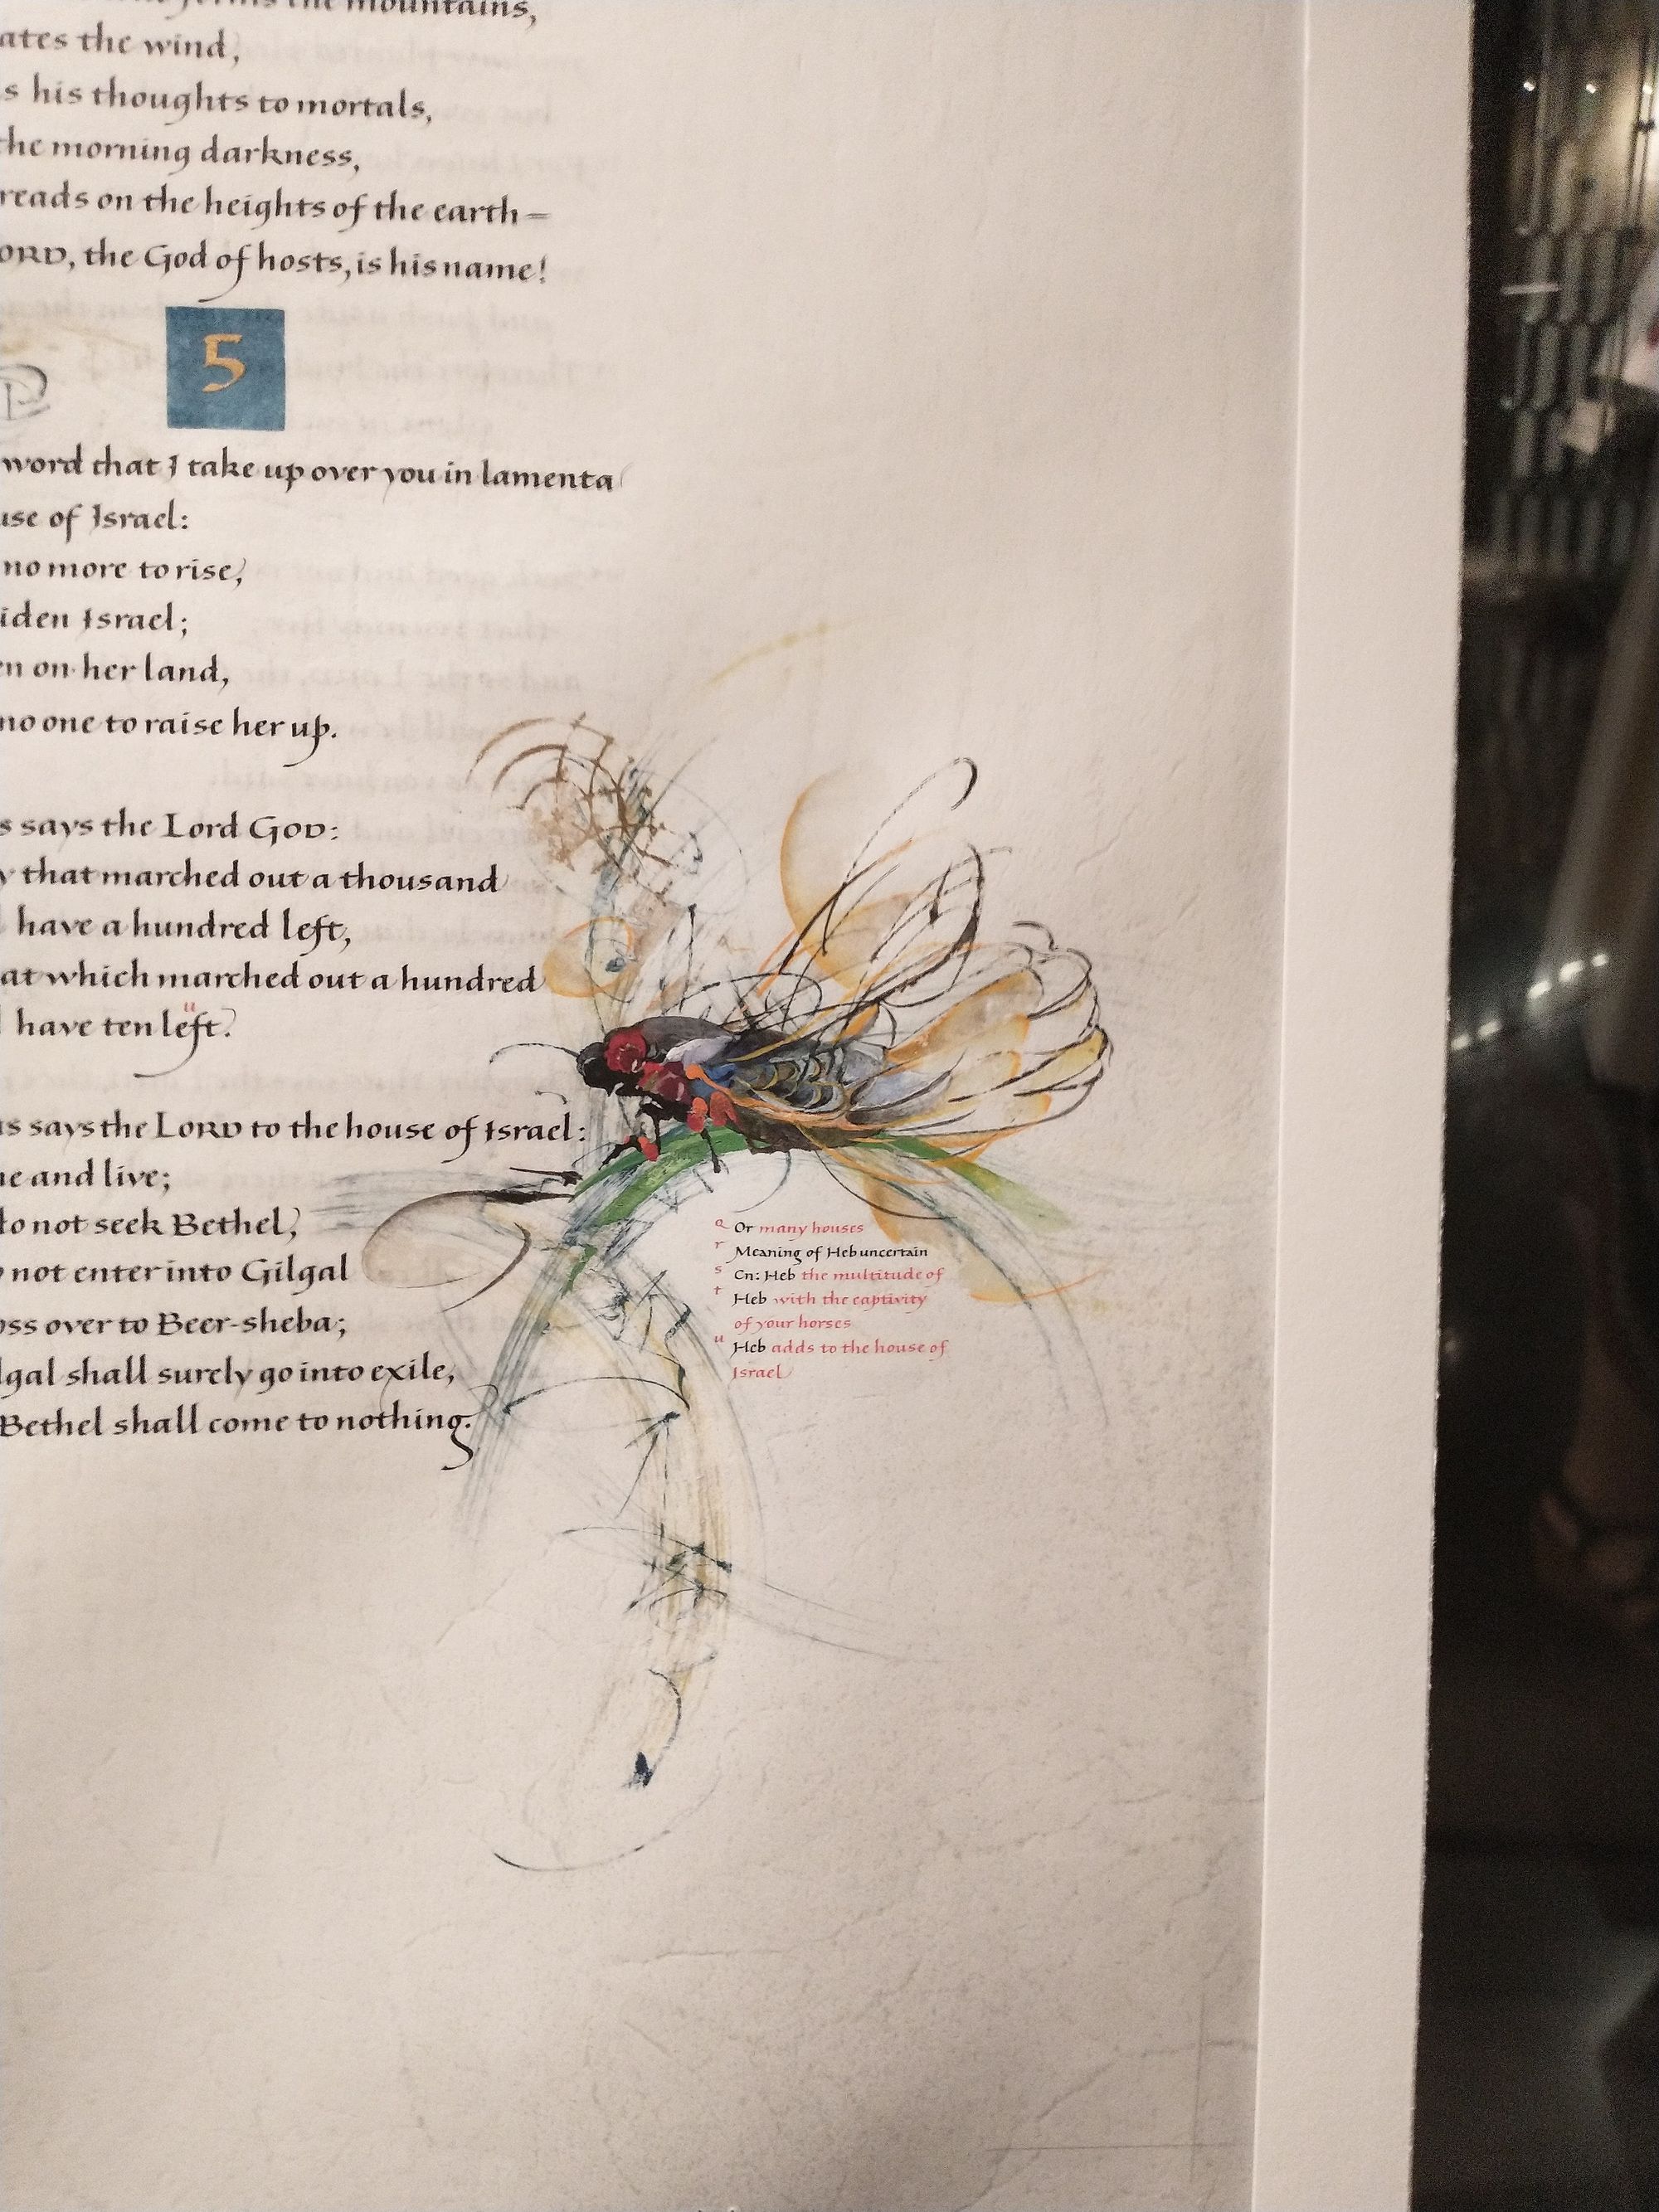 the mountains,
ates the wind,
s his thoughts to mortals,
the morning darkness,
reads on the heights of the earth—
ORD, the God of hosts, is his name!
5
word that I take up over you in lamenta
use of Israel:
no more to rise,
iden Israel;
en on her land,
no one to raise her up.
s says the Lord GOD:
y that marched out a thousand
have a hundred left,
at which marched out a hundred
have ten left.u
us says the LORD to the house of Israel:
me and live;
do not seek Bethel,
o not enter into Gilgal
oss over to Beer-sheba;
lgal shall surely go into exile,
Bethel shall come to nothing.
q Or many houses
r Meaning of Heb uncertain
s Cn: Heb the multitude of
t Heb with the captivity
of your horses
u Heb adds to the house of
Israel